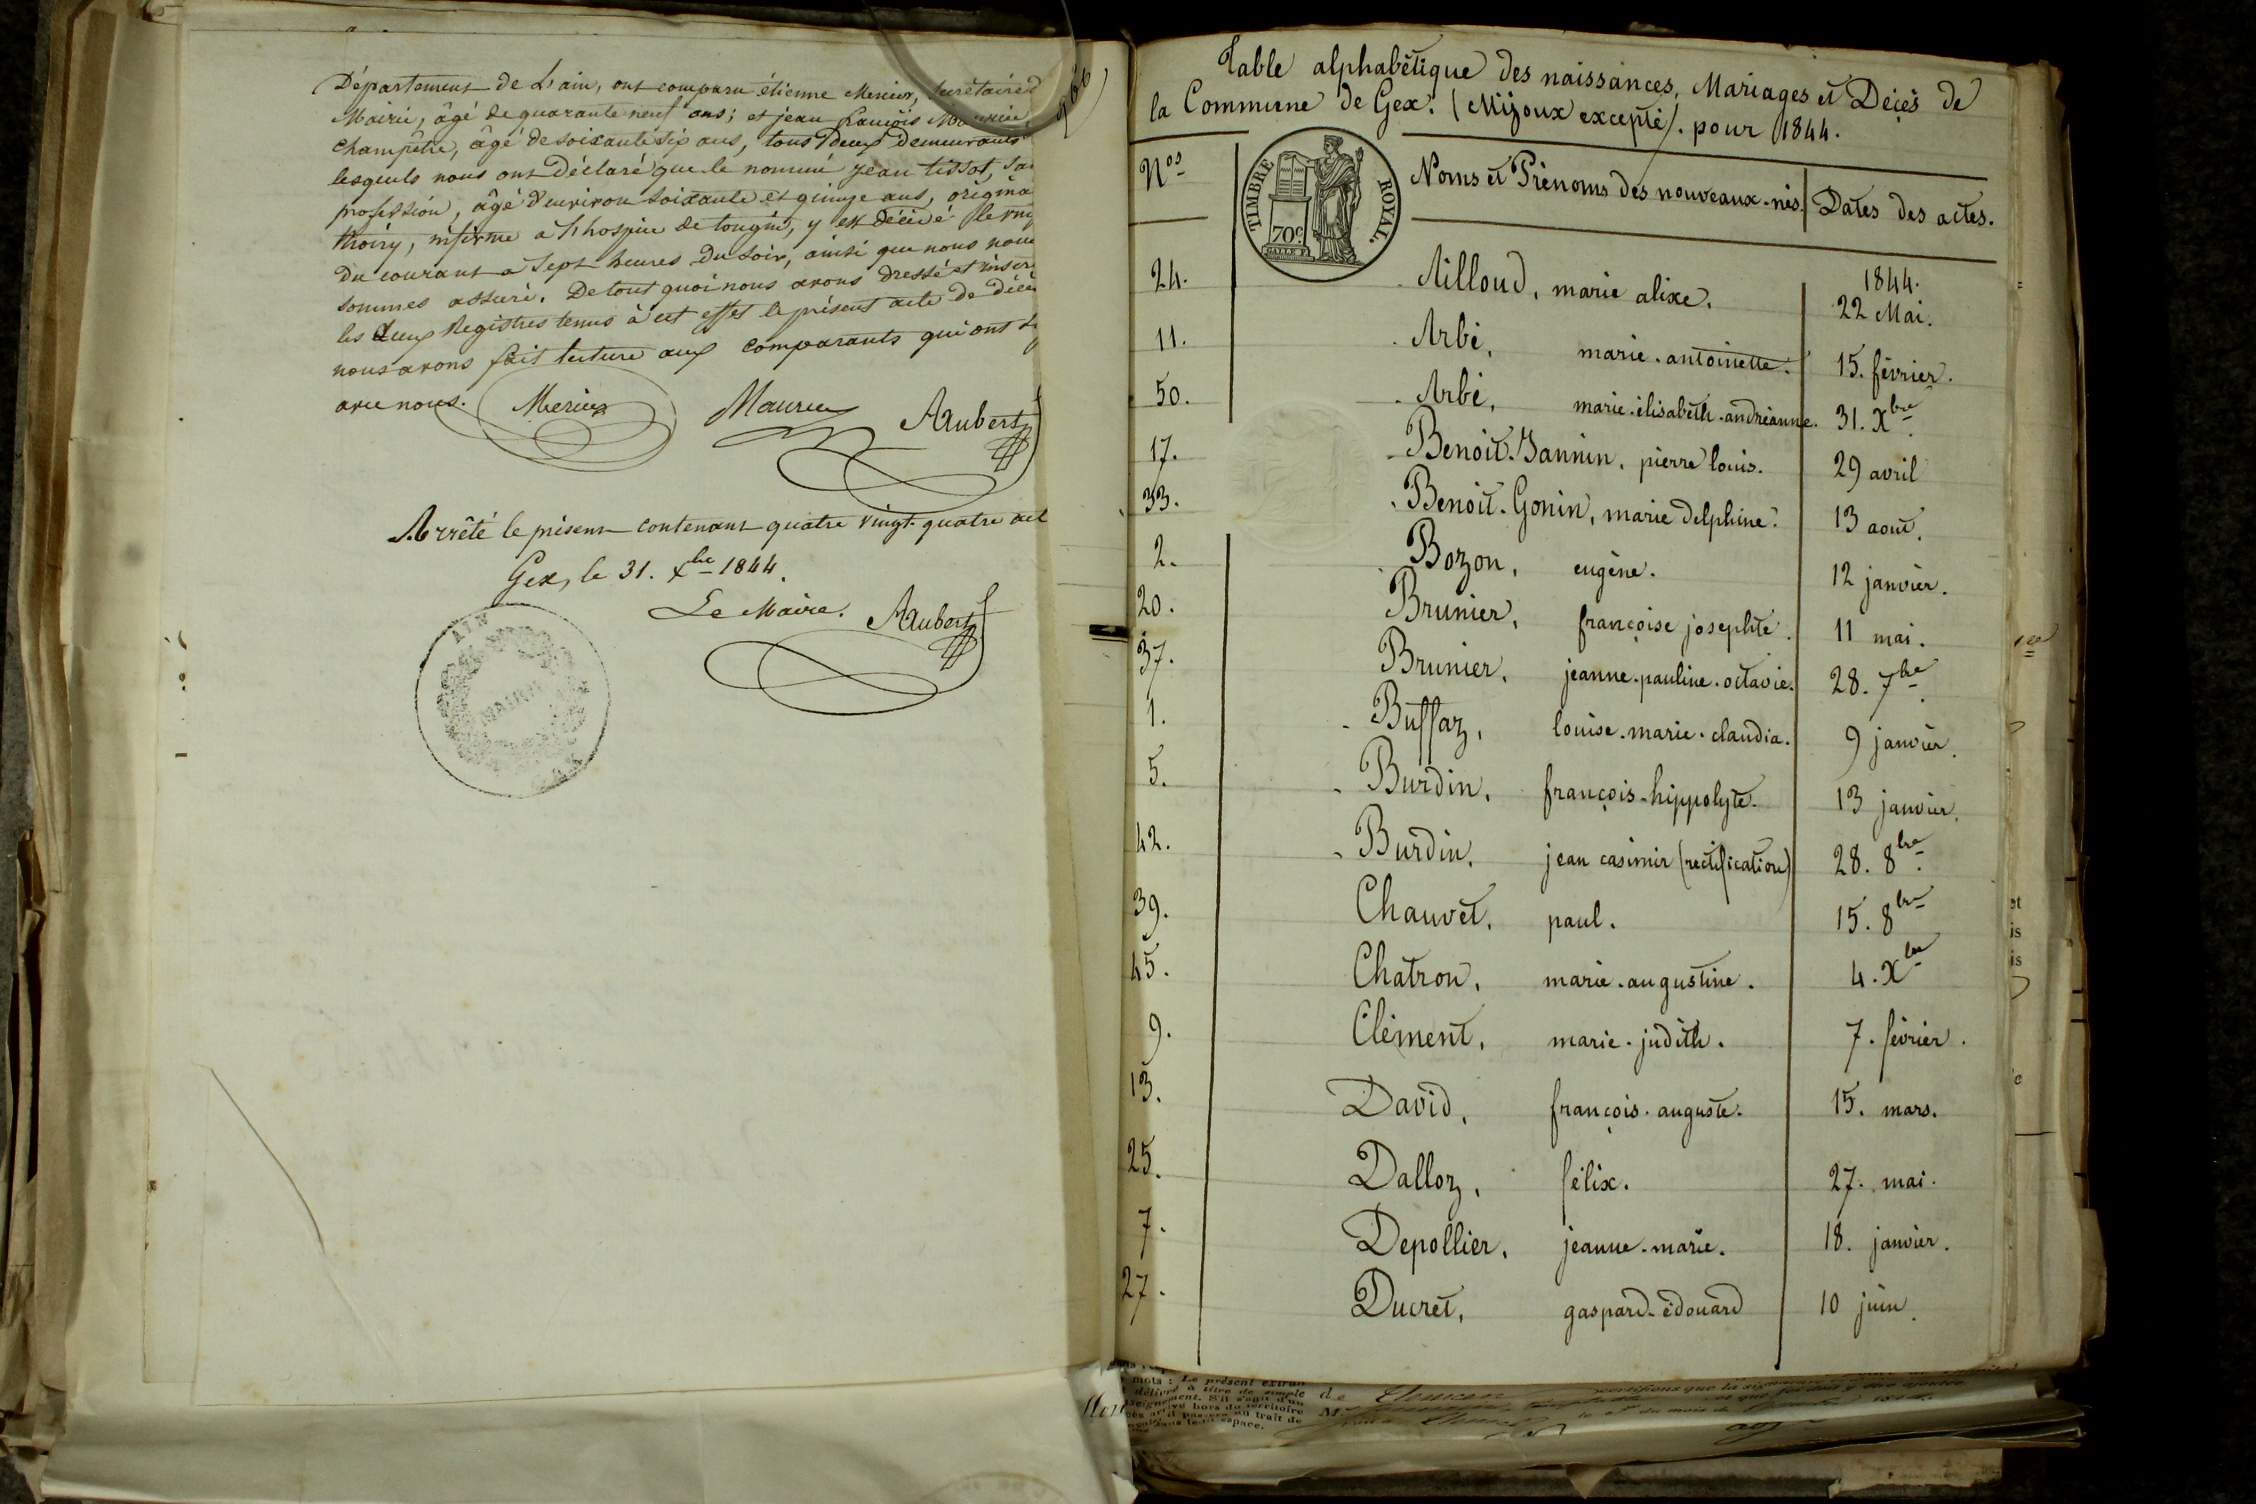 Département de L'ain, ont comparu étienne Mercier, Secrétaire d
Mairie, âgé de quarante neuf ans; et jean francois
champêtre, âgé de soixante six ans, tous deux demeurants
lesquels nous ont déclaré que le nommé jean tissot, san
profession, âgé d'environ soixante et quinze ans, origina
thoiry, infirme a l'hospice de tougin, y est décédé le
du courant a Sept heures du soir, ainsi que nous nous
sommes assuré. De tout quoi nous avons dressé et inscr
les deux Registres tenus à cet effet le présent acte de décè
nous avons fait lecture aux comparants qui ont
avec nous. Mercier Aubert
Arrêté le présent contenant quatre vingt-quatre act
Gex, le 31. Xbre 1844.
Le Maire. Aubert
AIN
MAIRIE
Table alphabétique des naissances, Mariages et Décès de
la Commune de Gex. (Mijoux excepté). pour 1844.
Nos Noms et Prénoms des nouveaux-nés. Dates des actes.
TIMBRE ROYAL.
70c
1844.
24. Ailloud, marie alixe. 22 Mai.
11. Arbé, marie-antoinette. 15. février.
50. Arbé, marie-élisabeth-andréanne. 31. Xbre
17. Benoit-Jannin, pierre louis. 29 avril
33. Benoit-Gonin, marie delphine. 13 aout.
2. Bozon, eugène. 12 janvier.
20. Brunier, françoise josephte. 11 mai.
37. Brunier, jeanne-pauline-octavie. 28. 7bre
1. Buffaz, louise-marie-claudia. 9 janvier.
5. Burdin, françois-hippolyte. 13 janvier.
42. Burdin, jean casimir (rectification) 28. 8bre
39. Chauvet, paul. 15. 8bre
45. Chatron, marie-augustine. 4. Xbre
9. Clément, marie-judith. 7. février.
13. David, françois-auguste. 15. mars.
25. Dalloz, félix. 27. mai.
7. Depollier, jeanne-marie. 18. janvier.
27. Ducret, gaspard-édouard 10 juin.
mots : Le présent extrai
délivré à titre de simple